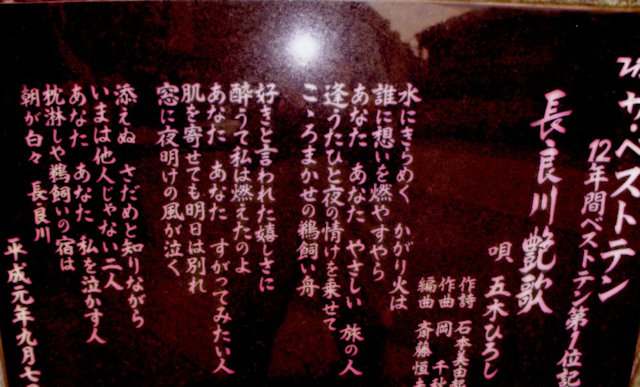 ザ・ベストテン
12年間ベストテン第1位記
長良川艶歌
唄 五木ひろし
作詩 石本美由
作曲 岡 千秋
編曲 斎藤恒夫
水にきらめく かがり火は
誰に想いを燃やすやら
あなた あなた やさしい 旅の人
逢うたひと夜の情けを乗せて
こゝろまかせの鵜飼い舟
好きと言われた嬉しさに
酔うて私は燃えたのよ
あなた あなた すがってみたい人
肌を寄せても明日は別れ
窓に夜明けの風が泣く
添えぬ さだめと知りながら
いまは他人じゃない二人
あなた あなた 私を泣かす人
枕淋しや鵜飼いの宿は
朝が白々 長良川
平成元年九月七